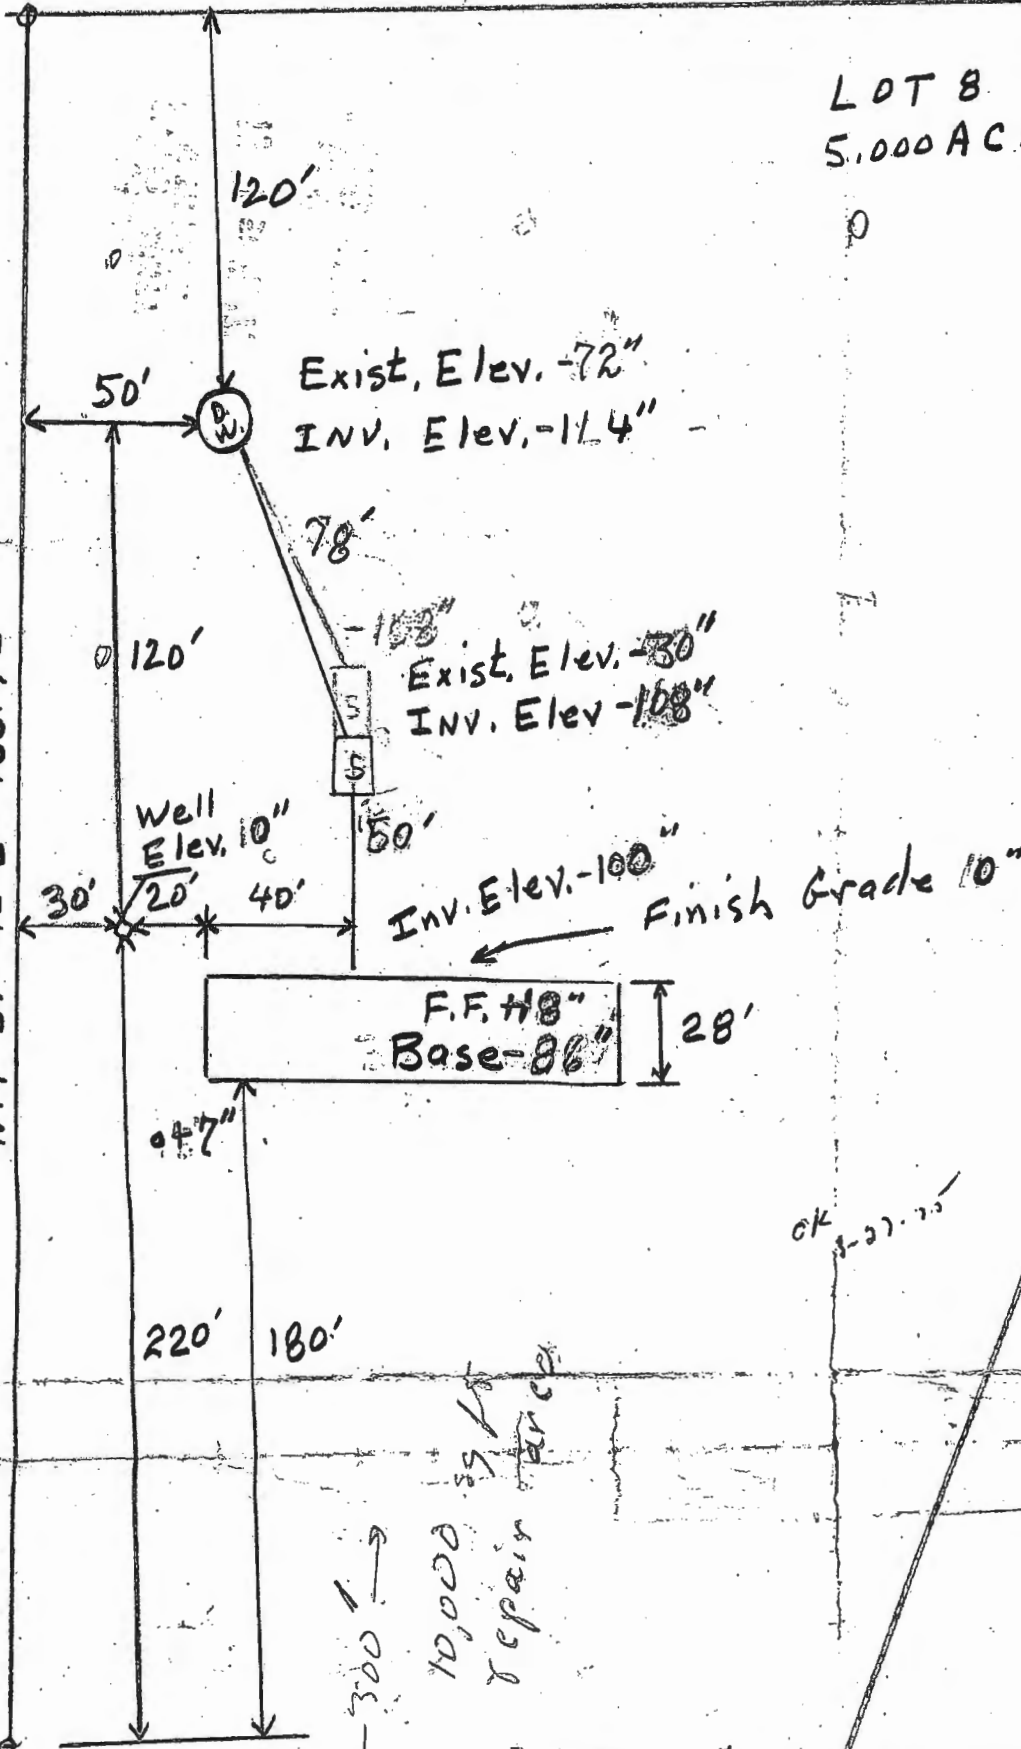 LOT 8
5.000 AC.
120'
50'
Exist. Elev. -72"
D.W.
INV. Elev. -114"
78'
-108"
Exist. Elev. -30"
INV. Elev -108"
S
S
120'
Well
Elev. 10"
50'
30'
20'
40'
Inv. Elev. -100"
Finish Grade 10"
F.F. +18"
Base -86"
28'
220'
180'
OK
300'
10,000
repair area